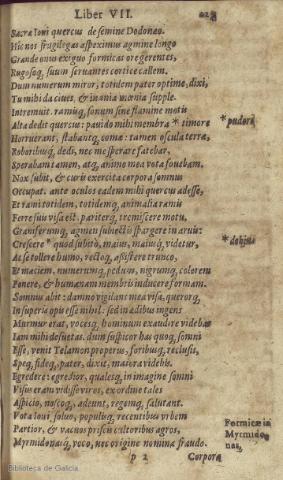 Liber VII.
Sacra Ioui quercus de semine Dodonæo.
Hic nos frugilegas aspeximus agmine longo
Grande onus exiguo formicas ore gerentes,
Rugosoq; suum seruantes cortice callem.
Dum numerum miror, totidem pater optime, dixi,
Tu mihi da ciues, & inania mœnia supple.
Intremuit. ramisq; sonum sine flamine motis
Alta dedit quercus: pauido mihi membra * timore
* pudore
Horruerant, stabantq; comæ: tamen oscula terræ,
Roboribusq; dedi, nec me sperare fatebar,
Sperabam tamen, atq; animo mea vota fouebam.
Nox subit, & curis exercita corpora somnus
Occupat. ante oculos eadem mihi quercus adesse,
Et rami totidem, totidemq; animalia ramis
Ferre suis visa est. pariterq; tremiscere motu,
Graniferumq; agmen subiectis spargere in aruis:
Crescere * quod subitò, maius, maiusq; videtur,
Ac se tollere humo, rectoq; assistere trunco,
Et maciem, numerumq; pedum, nigrumq; colorem
Ponere, & humanam membris inducere formam.
Somnus abit: damno vigilans mea visa, querorq;
In superis opis esse nihil: sed in ædibus ingens
Murmur erat, vocesq; hominum exaudire videbar
Iam mihi desuetas. dum suspicor has quoq; somni
Esse, venit Telamon properus, foribusq; reclusis,
Speq; fideq; pater, dixit, maiora videbis.
Egredere: egredior, qualesq; in imagine somni
Visus eram vidisse viros, ex ordine tales
Aspicio, noscoq; adeunt, regemq; salutant.
Vota Ioui soluo, populisq; recentibus vrbem
Partior, & vacuos priscis cultoribus agros,
Myrmidonasq; voco, nec origine nomina fraudo.
Formicæ in
Myrmido-
nas,
p 2
Corpora
Biblioteca de Galicia